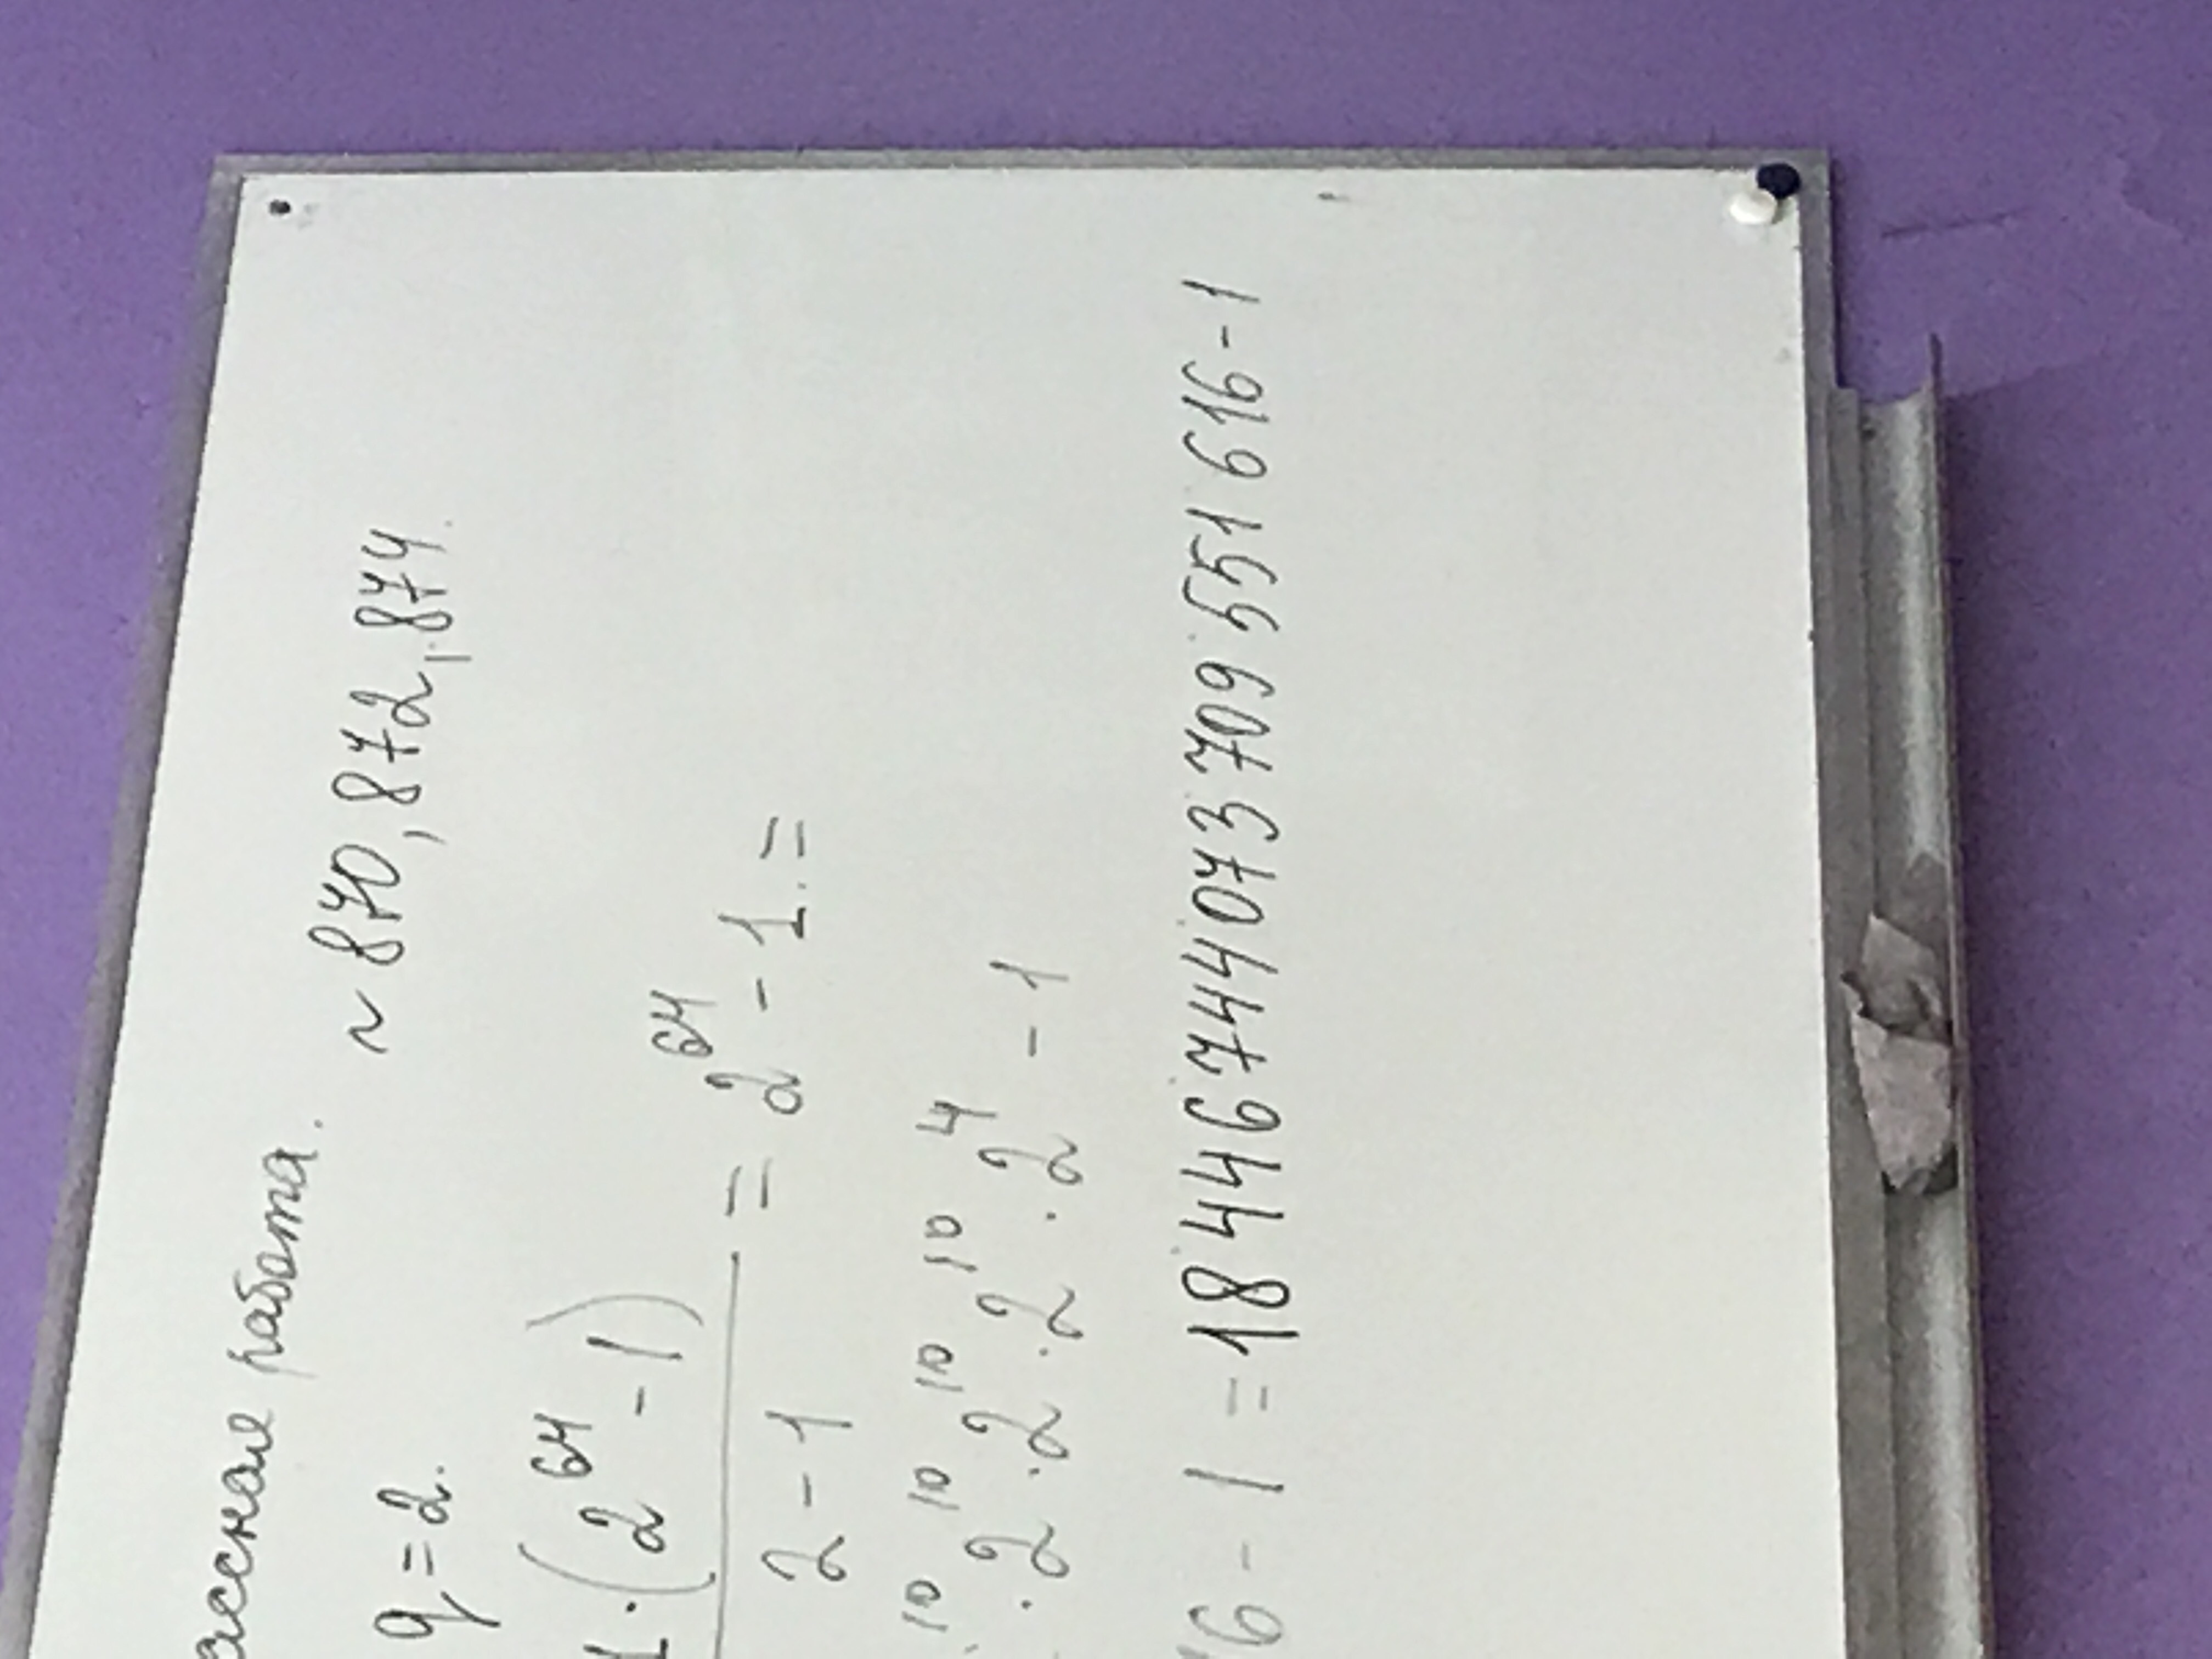 ассная работа. ~ 870, 872, 874.
q = 2.
1·(2⁶⁴ - 1)
2 - 1
= 2⁶⁴ - 1. =
¹⁰ · 2¹⁰ · 2¹⁰ · 2¹⁰ · 2⁴ - 1
16 - 1 = 18446744073709551616 - 1